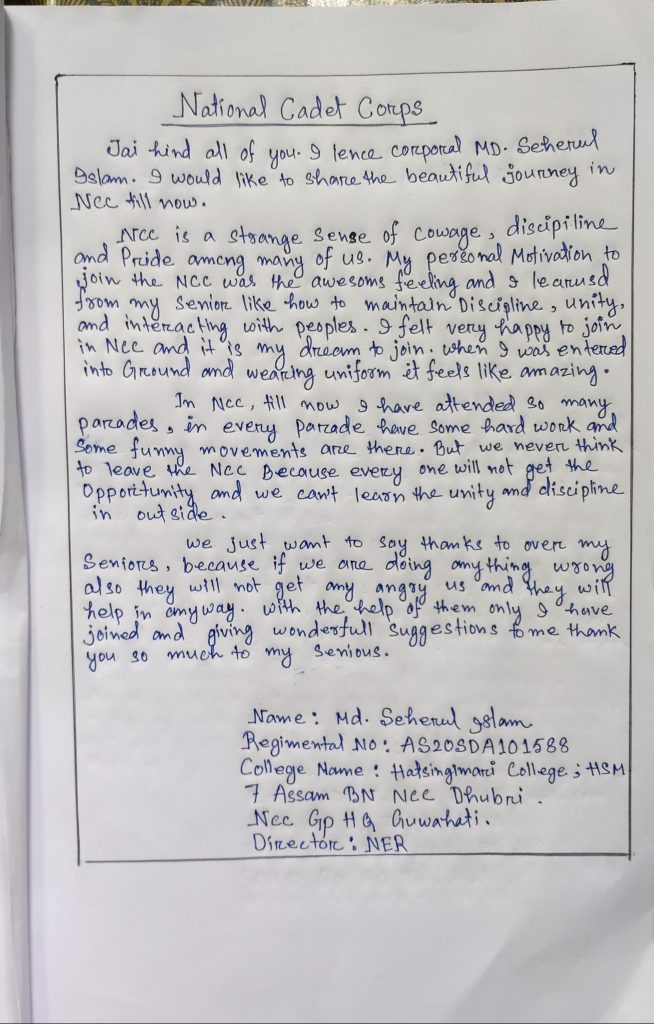 National Cadet Corps
Jai hind all of you. I lence corporal MD. Seherul
Islam. I would like to share the beautiful journey in
NCC till now.
NCC is a strange sense of cowage, discipiline
and Pride among many of us. My personal Motivation to
join the NCC was the awesoms feeling and I learnsd
from my Senior like how to maintain Discipline, unity,
and interacting with peoples. I felt very happy to join
in NCC and it is my dream to join. when I was entered
into Ground and wearing uniform it feels like amazing.
In NCC, till now I have attended so many
parades, in every parade have some hard work and
Some funny movements are there. But we never think
to leave the NCC Because every one will not get the
Opportunity and we can't learn the unity and discipline
in out side.
we just want to say thanks to over my
Seniors, because if we are doing any thing wrong
also they will not get any angry us and they will
help in any way. with the help of them only I have
joined and giving wonderfull Suggestions to me thank
you so much to my Senious.
Name: Md. Seherul Islam
Regimental No: AS20SDA101588
College Name: Hatsinglmari College; HSM
7 Assam BN NCC Dhubri.
NCC Gp HQ Guwahati.
Director: NER